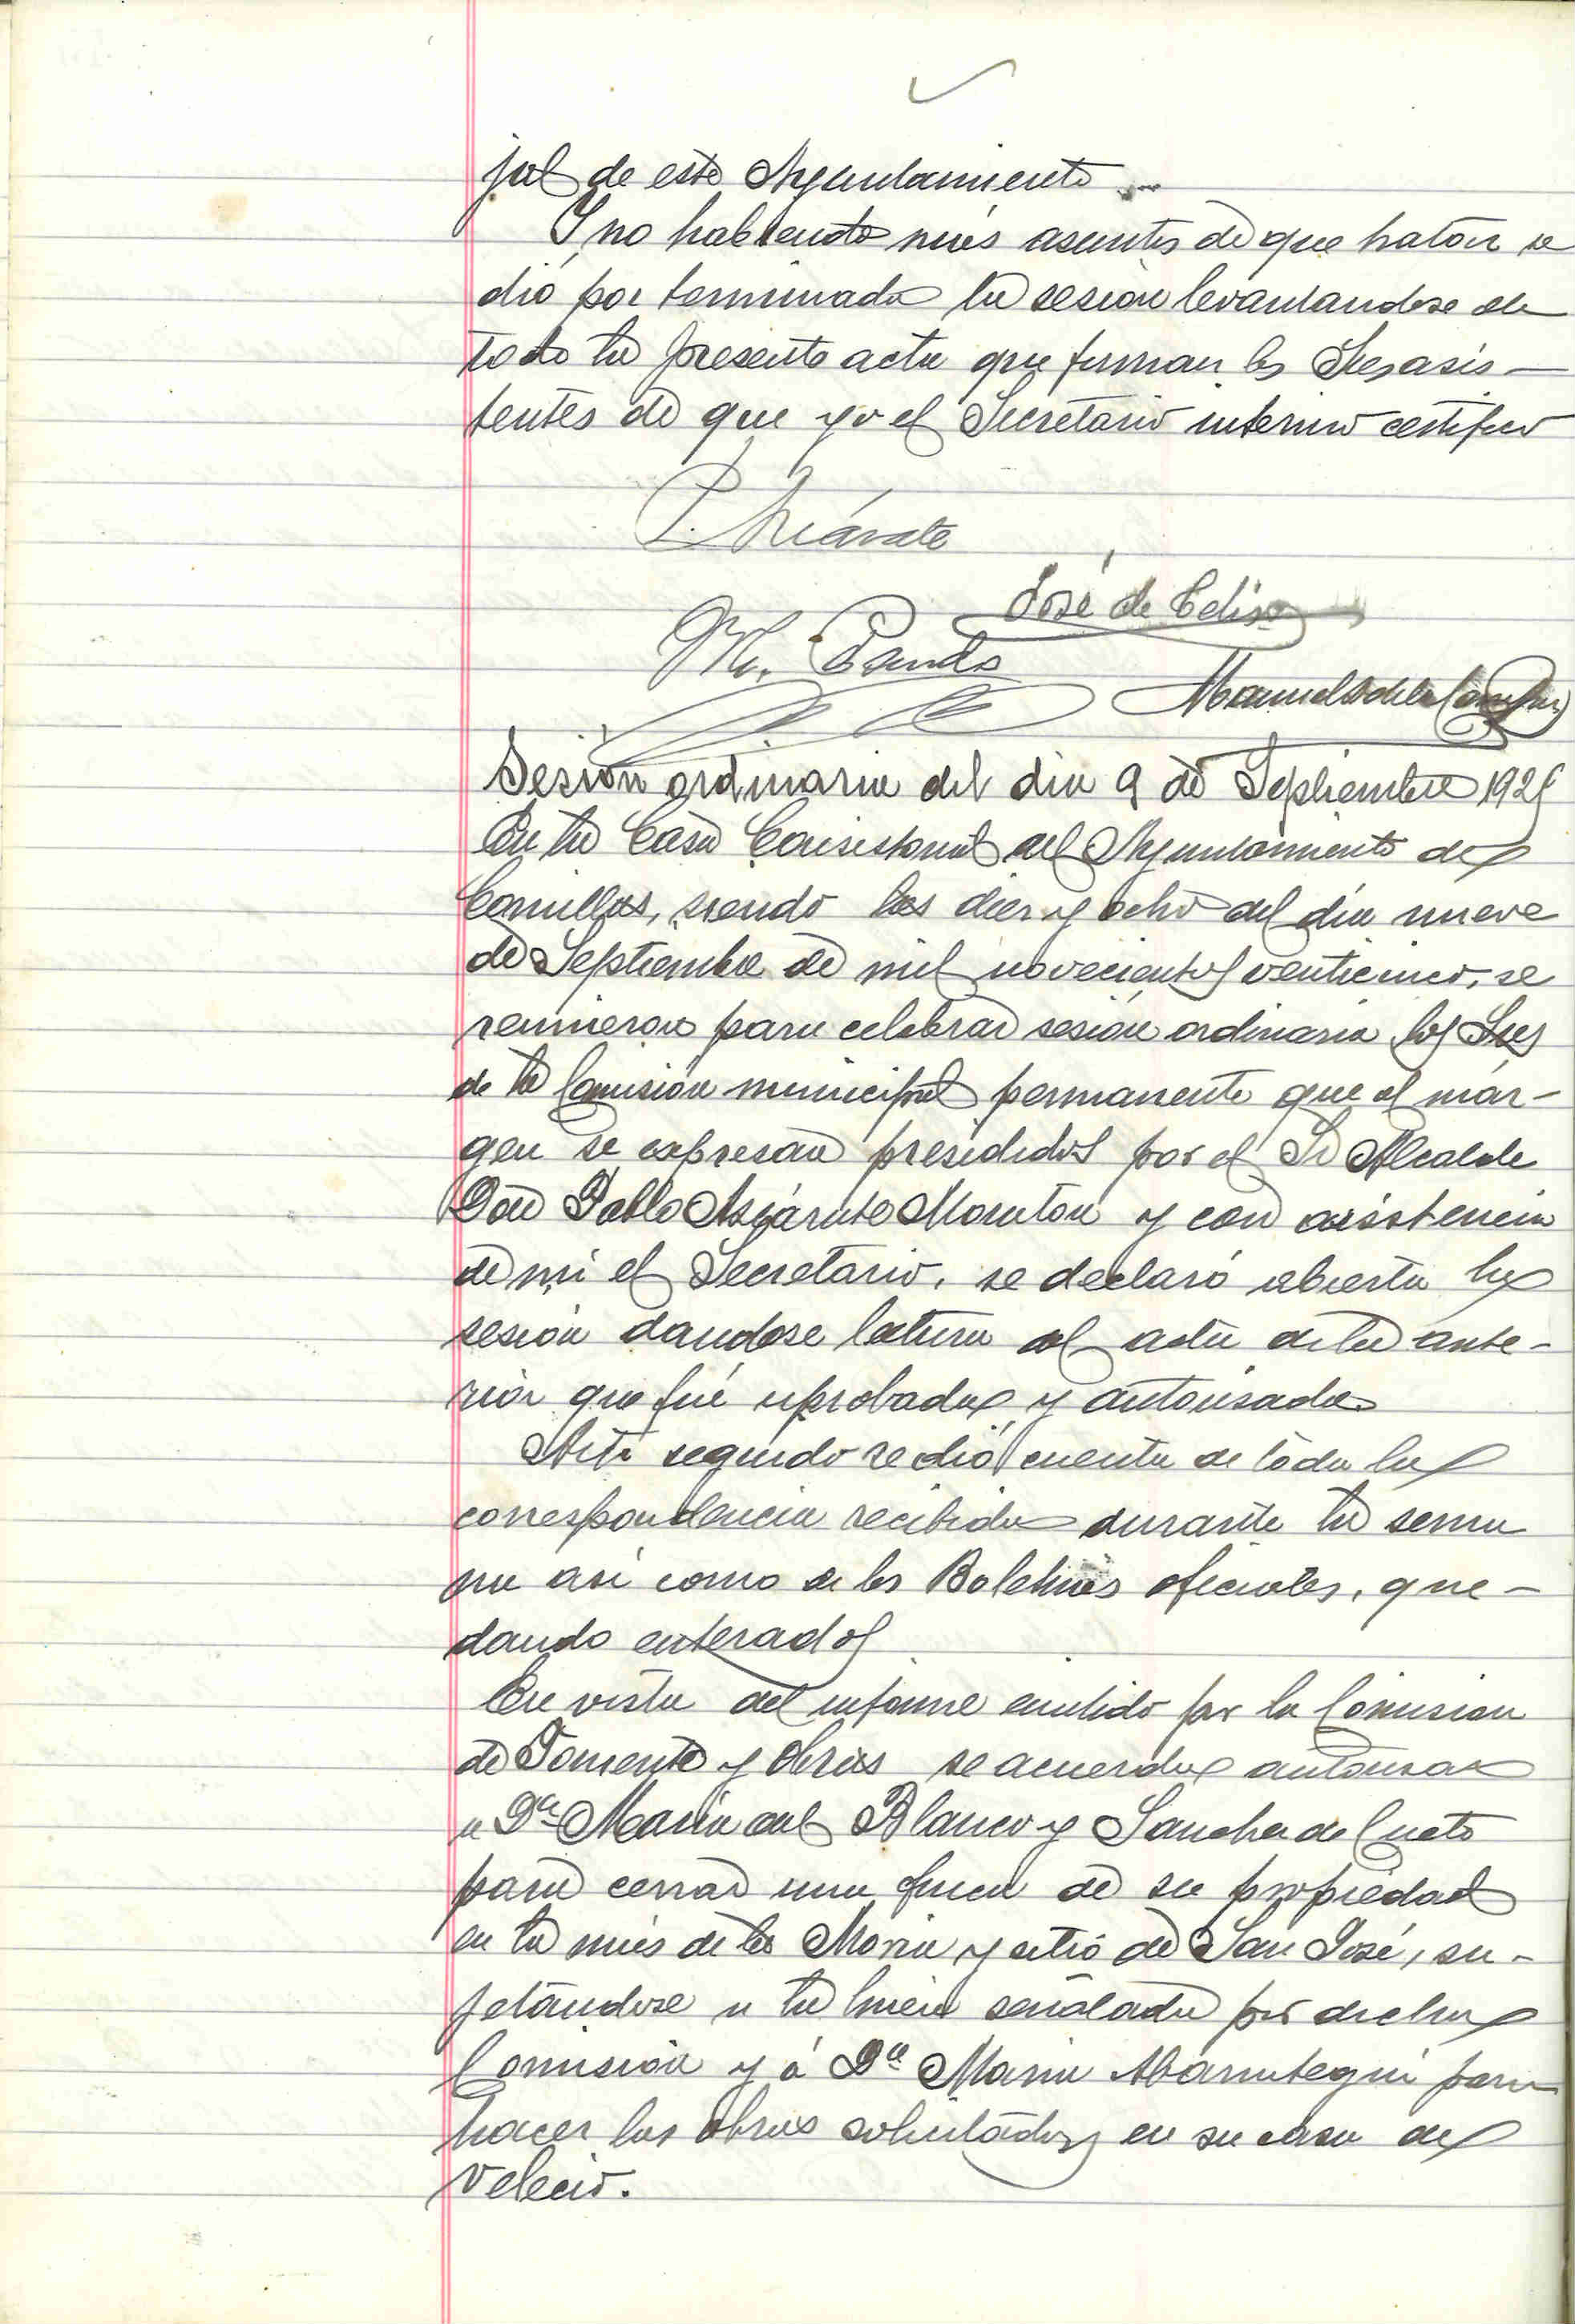 jal de este Ayuntamiento
Y no habiendo más asuntos de que tratar se
dió por terminada la sesión levantandose de
todo la presente acta que firman los Sres asis-
tentes de que yo el Secretario interino certifico
José de Celis
M. Pando
Manuel
Sesión ordinaria del dia 9 de Septiembre 1925
En la Casa Consistorial del Ayuntamiento de
Comillas, siendo las diez y ocho del día nueve
de Septiembre de mil novecientos veinticinco, se
reunieron para celebrar sesión ordinaria los Sres
de la Comisión municipal permanente que al már-
gen se expresan presididos por el Sr Alcalde
Don Pablo y con asistencia
de mi el Secretario, se declaró abierta la
sesión dandose lectura al acta de la ante-
rior que fué aprobada y autorisada
Acto seguido se dió cuenta de toda la
correspondencia recibida durante la sema
na así como de los Boletines oficiales, que-
dando enterados
En vista del informe emitido por la Comision
de Fomento y Obras se acuerda autorisar
a Dª Maria del Blanco y Sanchez de Cueto
para cerrar una finca de su propiedad
en la mies de la Moria y sitio de San José, su-
jetándose a la linea señalada por dicha
Comisión y á Dª Maria para
hacer las obras solicitadas en su casa de
Velecio.